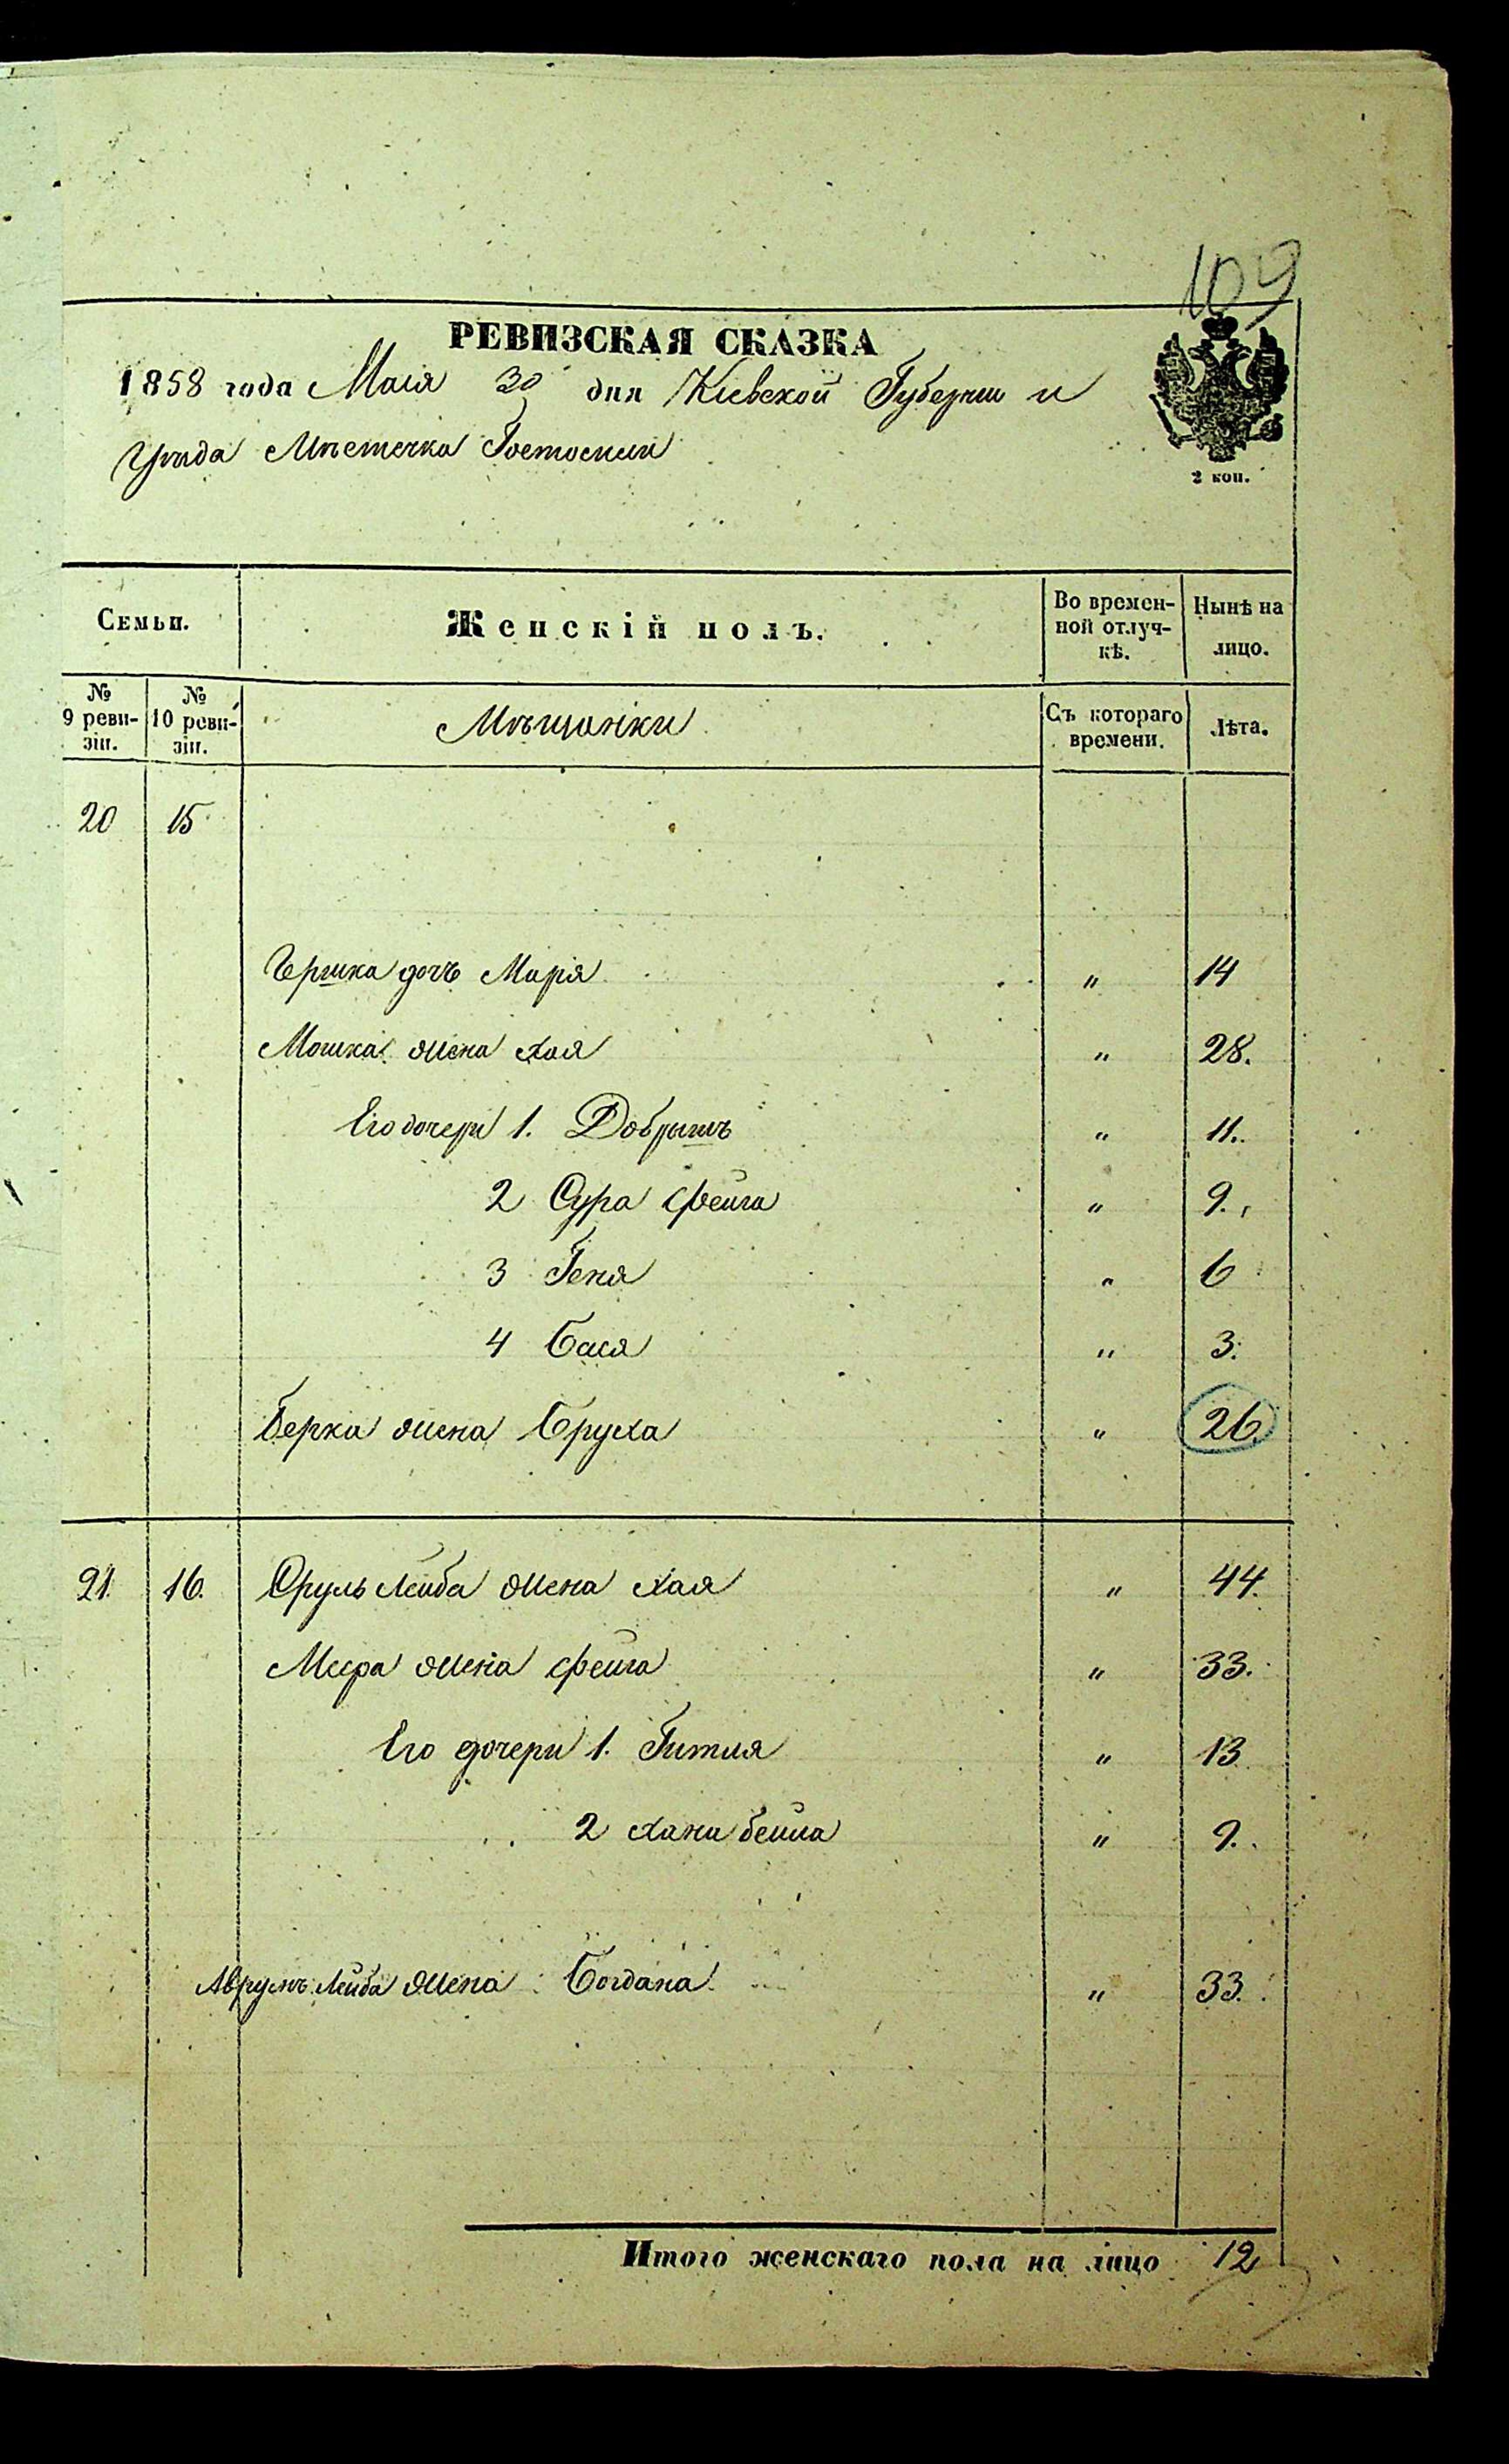 109
РЕВИЗСКАЯ СКАЗКА
1858 года Мая 30 дня Кіевской Губерніи и
Уѣзда Мѣстечка Гостомля
2 коп.
Семьи. Женскій полъ. Во времен-ной отлуч-кѣ. Нынѣ на лицо.
№ 9 реви-зіи. № 10 реви-зіи. Мѣщанки Съ котораго времени. Лѣта.
20 15
Гершка дочь Марія " 14
Мошка жена Хая " 28.
Его дочери 1. Добрышъ " 11.
2 Сура Фейга " 9.
3 Геня " 6
4 Бася " 3.
Берка жена Бруха " 26.
21. 16. Сруль Лейба жена Хая " 44.
Меера жена Фейга " 33.
Его дочери 1. Гитля " 13
2 Хана бейла " 9.
Аврумъ Лейба жена Богдана " 33.
Итого женскаго пола на лицо 12